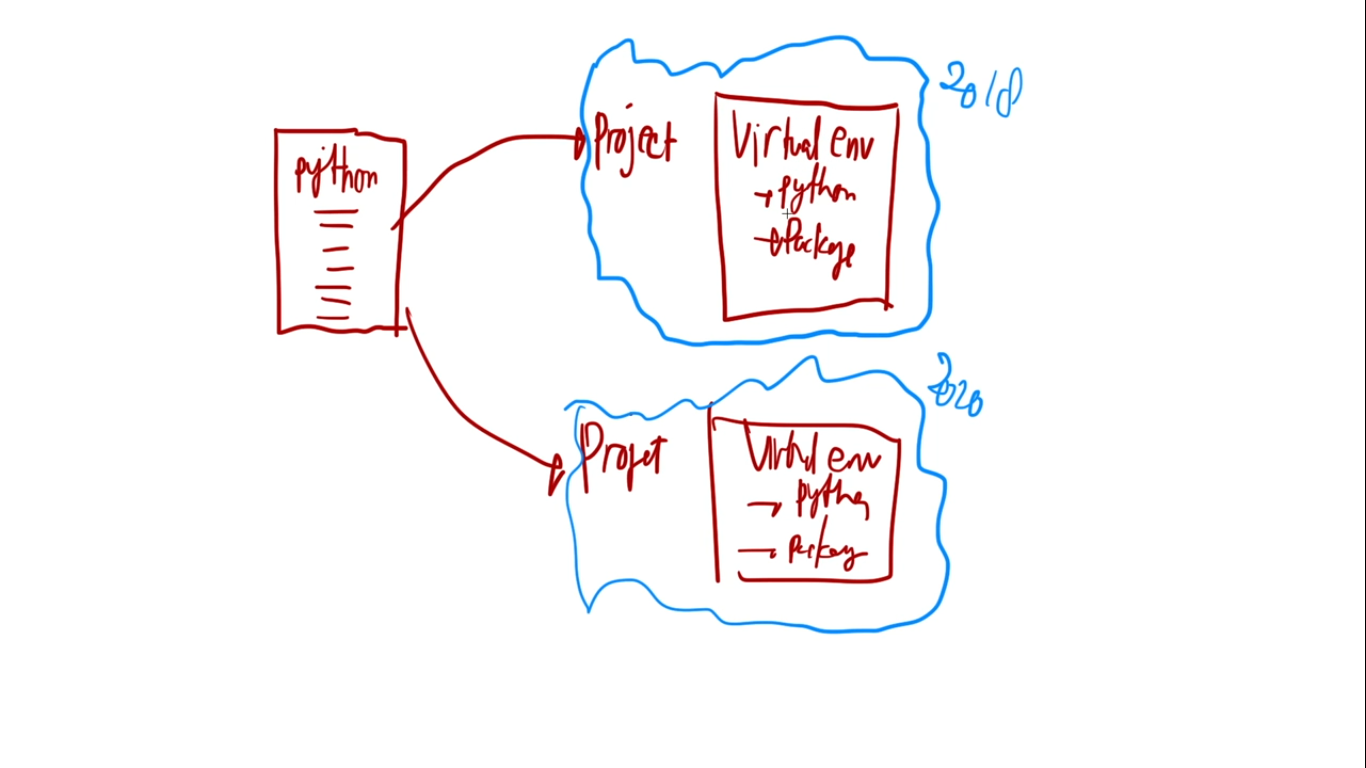 python
Project
Virtual env
→ python
→ Package
2018
Projet
Virtual env
→ python
→
2020